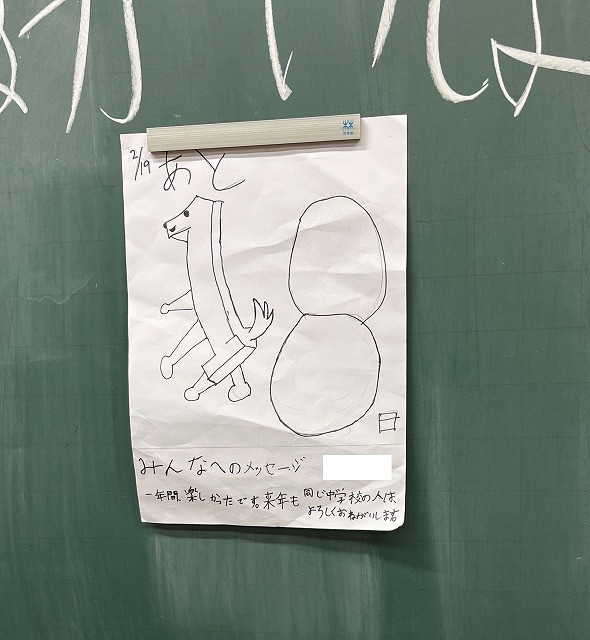 2/19 あと
8
日
みんなへのメッセージ
一年間、楽しかったです。来年も同じ中学校の人は
よろしくおねがいします